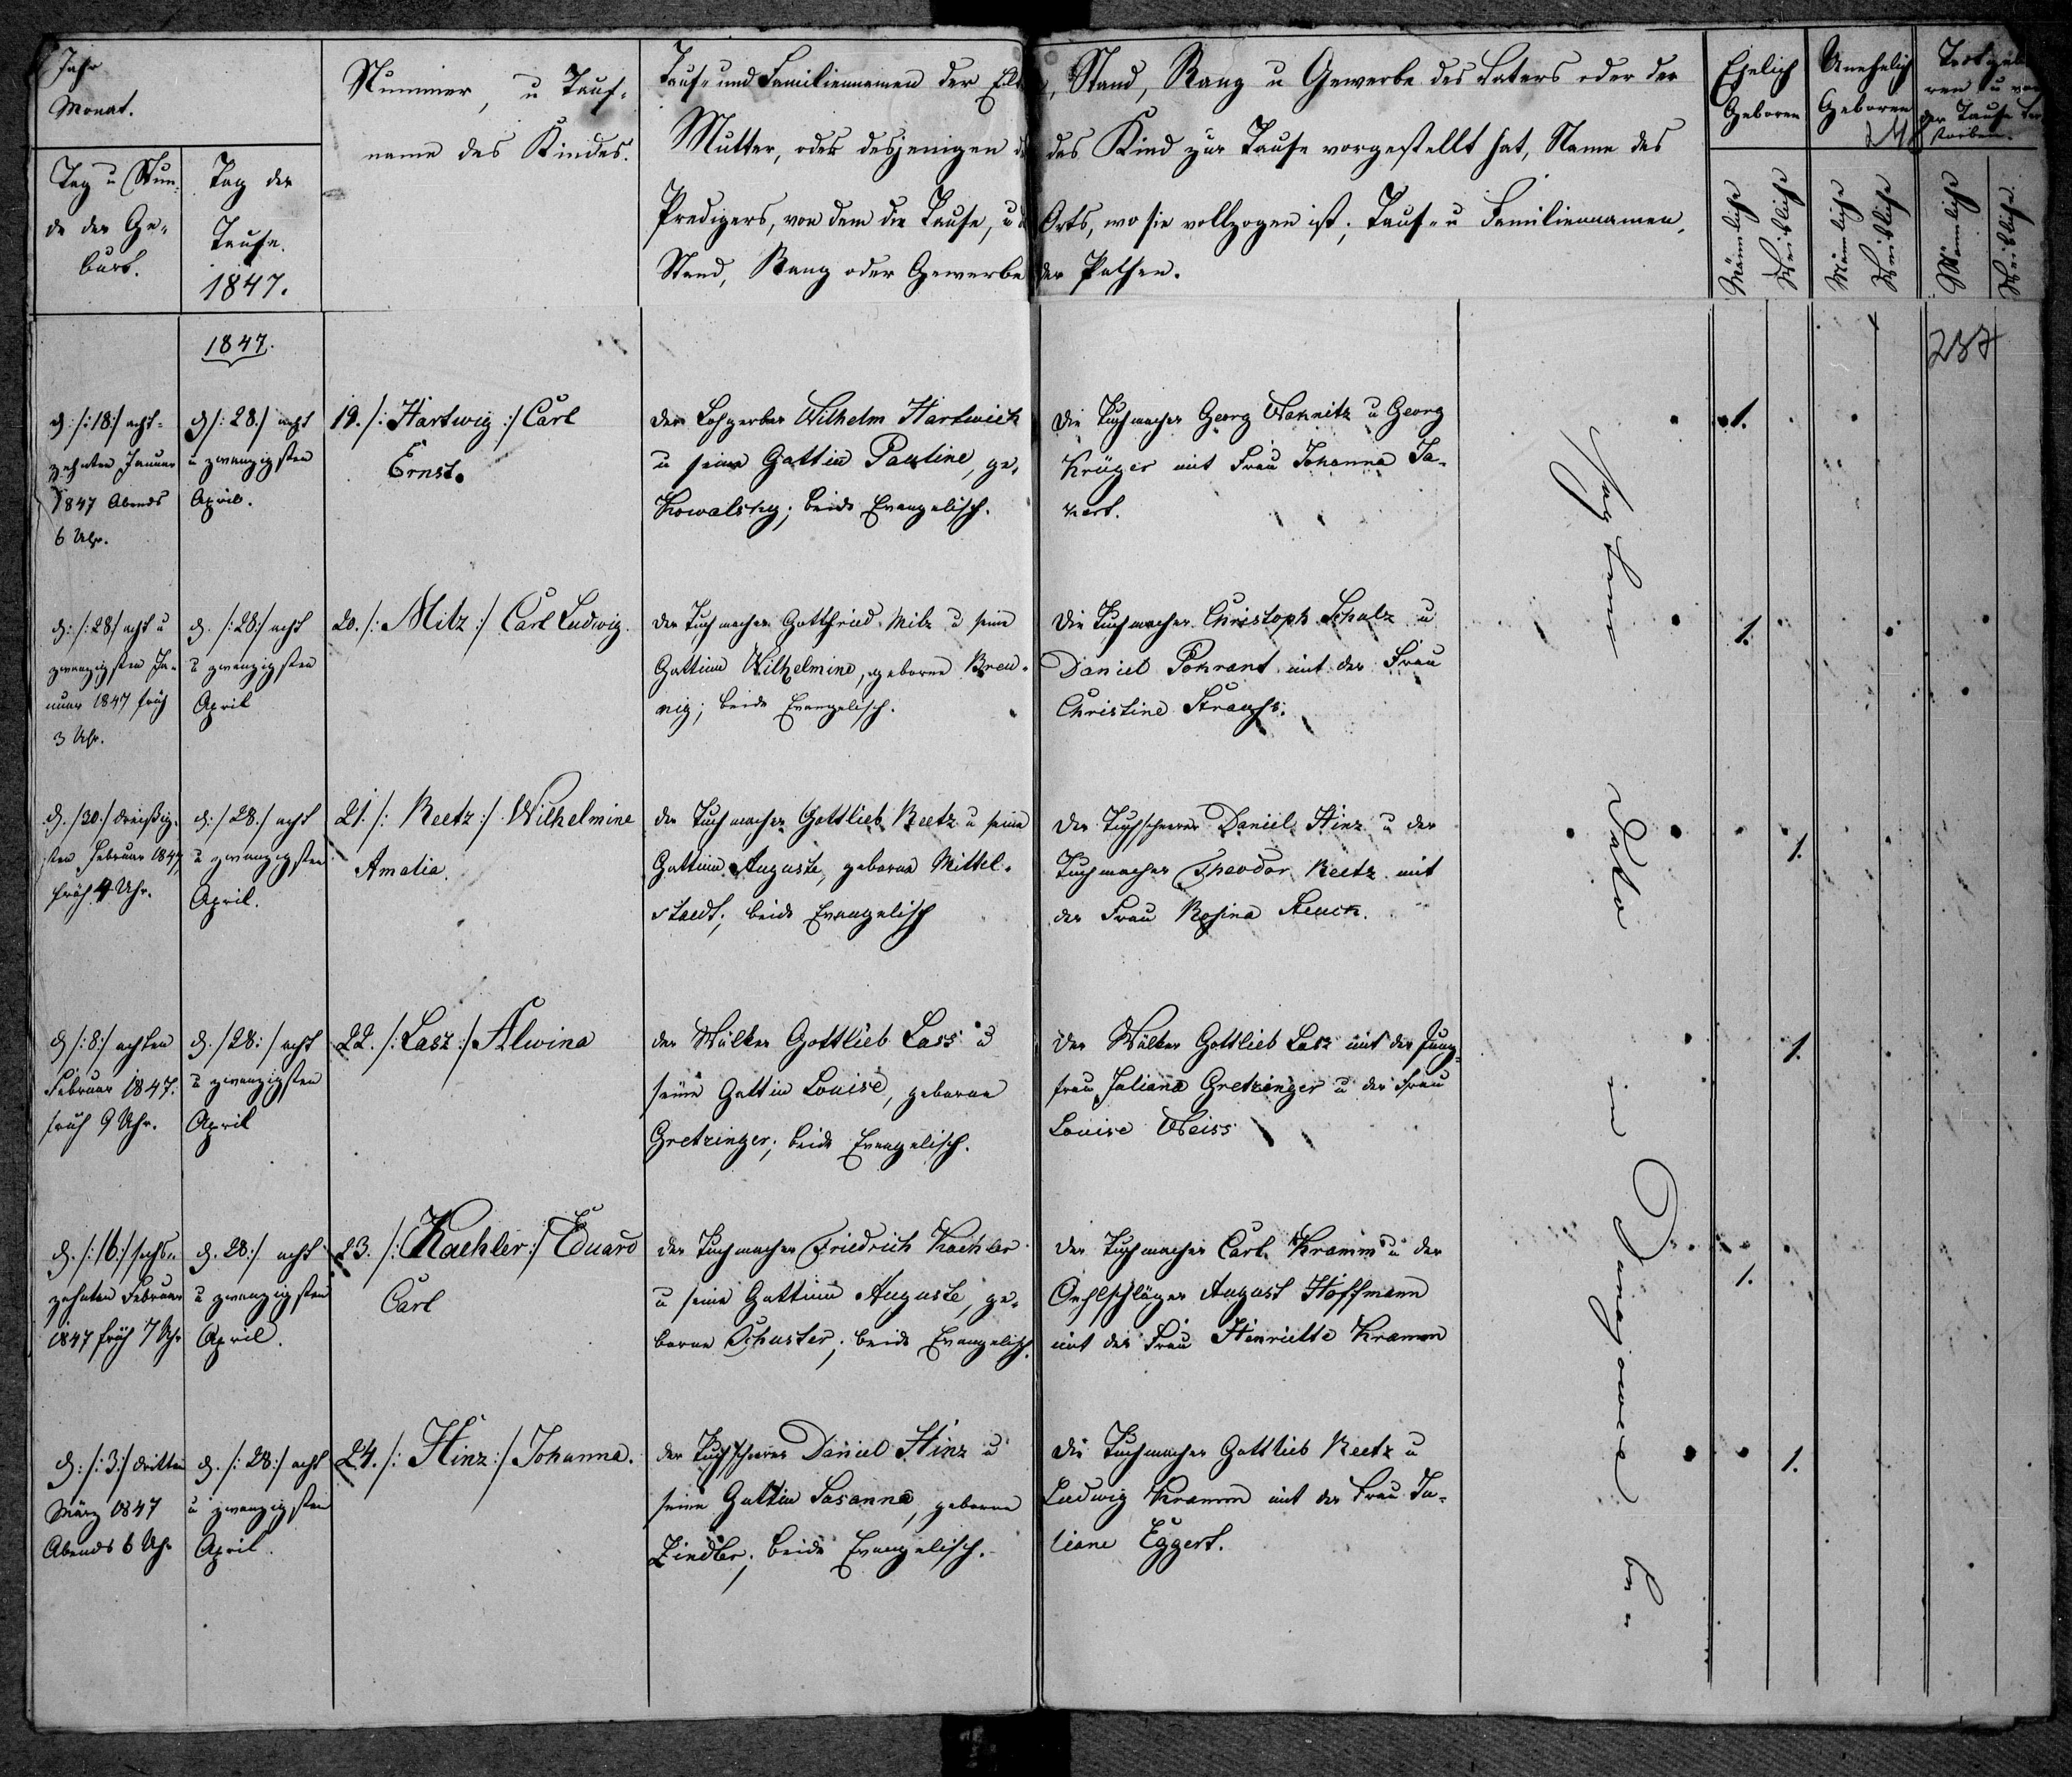 Jahr
Monat.
Tag u Stun-
de der Ge-
burt.
Tag der
Taufe.
1847.
Nummer, u Tauf-
name des Kindes.
Tauf- und Familiennamen der Elt, Stand, Rang u Gewerbe des Vaters oder der
Mutter, oder desjenigen d das Kind zur Taufe vorgestellt hat, Name des
Predigers, von dem die Taufe, u d Orts, wo sie vollzogen ist; Tauf- u Familiennamen,
Stand, Rang oder Gewerbe der Pathen.
Ehelich
Geboren
Unehelich
Geboren
Todtgebo
ren u vor
der Taufe ver
storben.
Männliche
Weibliche
Männliche
Weibliche
Männliche
Weibliche
1847.
237
d: /:18:/ acht-
zehnten Januar
1847 Abends
6 Uhr.
d /:28:/ acht
u zwanzigsten
April.
19. /: Hartwig :/ Carl
Ernst.
Der Lohgerber Wilhelm Hartwich
u seine Gattin Pauline, ge,
Kowalsky; beide Evangelisch.
Die Tuchmacher Georg Wannitz u Georg
Krüger mit Frau Johanna Ja-
kert.
1.
d: /:28:/ acht u
zwanzigsten Ja-
nuar 1847 früh
3 Uhr.
d. /:28:/ acht
u zwanzigsten
April
20. /: Milz :/ Carl Ludwig.
Der Tuchmacher Gottfried Milz u seine
Gattinn Wilhelmine, geborne Bren-
nig; beide Evangelisch.
Die Tuchmacher Christoph Schulz u
Daniel Pokrant mit der Frau
Christine Strauhs.
1.
d. /30:/ dreißig-
sten Februar 1847,
früh 4 Uhr.
d: /28:/ acht
u zwanzigsten
April.
21. /: Reetz :/ Wilhelmine
Amalia.
Der Tuchmacher Gottlieb Reetz u seine
Gattinn Auguste, geborne Mittel-
staedt; beide Evangelisch
Der Tuchscherer Daniel Hinz u der
Tuchmacher Theodor Reetz mit
der Frau Rosina Steuck.
1.
d /:8:/ achten
Februar 1847.
früh 9 Uhr.
d. /28:/ acht
u zwanzigsten
April
22. /: Lasz :/ Alwina
Der Walker Gottlieb Lass u
seine Gattin Louise, geborne
Gretzinger; beide Evangelisch.
Der Walker Gottlieb Lasz mit der Jung-
frau Juliana Gretzinger u der Frau
Louise Weiss
1.
d. /:16:/ sechs-
zehnten Februar
1847 früh 7 Uhr
d. 28:/ acht
u zwanzigsten
April.
23. /: Kaehler :/ Eduard
Carl
Der Tuchmacher Friedrich Kaehler
u seine Gattinn Auguste, ge-
borne Schuster; beide Evangelisch.
Der Tuchmacher Carl Kramm u der
Oehlschläger August Hoffmann
mit der Frau Henriette Kramm
1.
d: /:3:/ dritten
März 1847
Abends 6 Uhr
d. /:28:/ acht
u zwanzigsten
April.
24. /: Hinz :/ Johanna.
Der Tuchscherer Daniel Hinz u
seine Gattin Susanna, geborne
Zindler; beide Evangelisch.
Die Tuchmacher Gottlieb Reetz u
Ludwig Kramm mit der Frau Ju-
liane Eggert.
1.